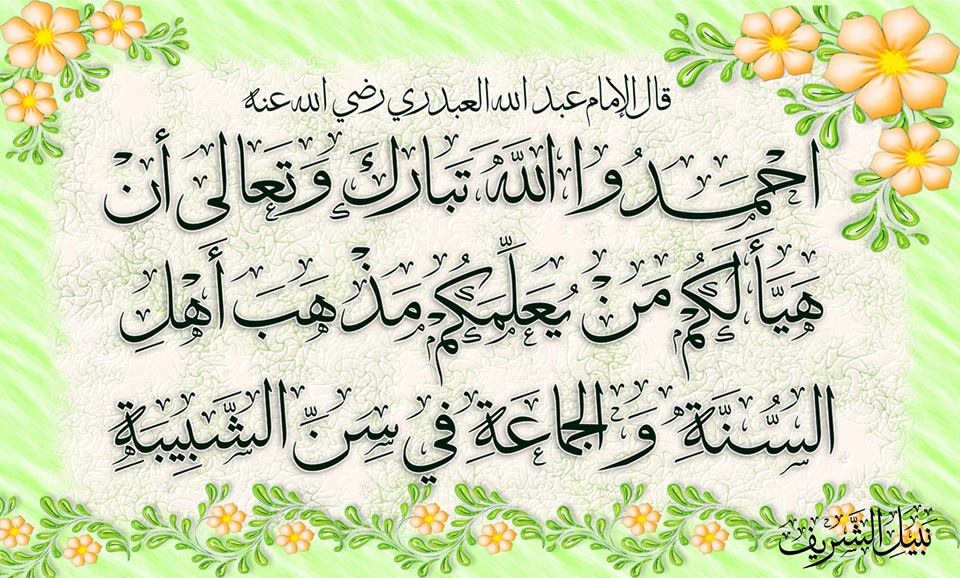 قال الإمام عبد الله العبدري رضي الله عنه
احْمَدُوا اللّهَ تَبارَكَ وَتَعالى أنْ
هَيَّأَ لَكُم مَنْ يُعَلِّمَكُم مَذْهَبَ أَهْلِ
السُّنَّةِ وَالجَماعَةِ في سِنِّ الشَّبِيبَةِ
نبيل الشريف